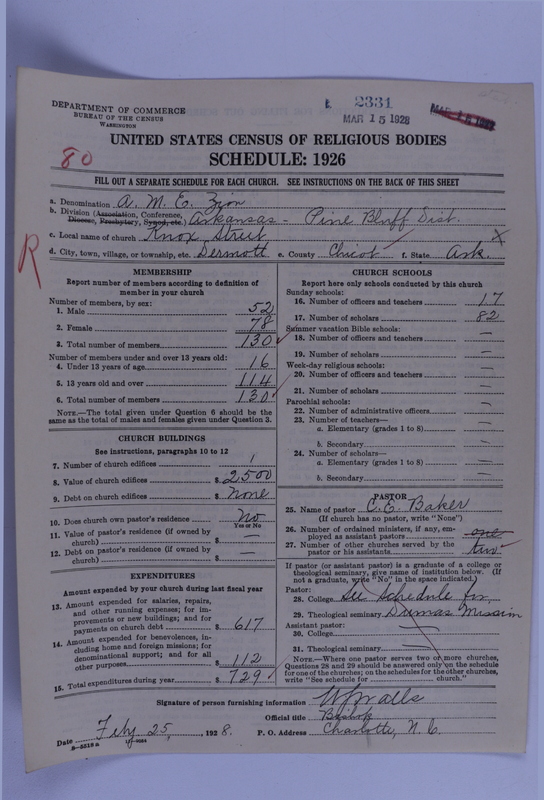 2331
MAR 15 1928
DEPARTMENT OF COMMERCE
BUREAU OF THE CENSUS
WASHINGTON
UNITED STATES CENSUS OF RELIGIOUS BODIES
SCHEDULE: 1926
80
FILL OUT A SEPARATE SCHEDULE FOR EACH CHURCH. SEE INSTRUCTIONS ON THE BACK OF THIS SHEET
a. Denomination A. M. E. Zion
b. Division (Association, Conference, Diocese, Presbytery, Synod, etc.) Arkansas - Pine Bluff Dist.
c. Local name of church Knox Street X
d. City, town, village, or township, etc. Dermott e. County Chicot f. State Ark.
R
MEMBERSHIP
Report number of members according to definition of
member in your church
Number of members, by sex:
1. Male 52
2. Female 78
3. Total number of members 130
Number of members under and over 13 years old:
4. Under 13 years of age 16
5. 13 years old and over 114
6. Total number of members 130
NOTE.—The total given under Question 6 should be the
same as the total of males and females given under Question 3.
CHURCH BUILDINGS
See instructions, paragraphs 10 to 12
7. Number of church edifices 1
8. Value of church edifices $ 2500
9. Debt on church edifices $ None
10. Does church own pastor's residence No
Yes or No
11. Value of pastor's residence (if owned by
church) $ —
12. Debt on pastor's residence (if owned by
church) $ —
EXPENDITURES
Amount expended by church during last fiscal year
13. Amount expended for salaries, repairs,
and other running expenses; for im-
provements or new buildings; and for
payments on church debt $ 617
14. Amount expended for benevolences, in-
cluding home and foreign missions; for
denominational support; and for all
other purposes $ 112
15. Total expenditures during year $ 729
CHURCH SCHOOLS
Report here only schools conducted by this church
Sunday schools:
16. Number of officers and teachers 17
17. Number of scholars 82
Summer vacation Bible schools:
18. Number of officers and teachers —
19. Number of scholars —
Week-day religious schools:
20. Number of officers and teachers —
21. Number of scholars —
Parochial schools:
22. Number of administrative officers —
23. Number of teachers—
a. Elementary (grades 1 to 8) —
b. Secondary —
24. Number of scholars—
a. Elementary (grades 1 to 8) —
b. Secondary —
PASTOR
25. Name of pastor C. E. Baker
(If church has no pastor, write "None")
26. Number of ordained ministers, if any, em-
ployed as assistant pastors one
27. Number of other churches served by the
pastor or his assistants two
If pastor (or assistant pastor) is a graduate of a college or
theological seminary, give name of institution below. (If
not a graduate, write "No" in the space indicated.)
Pastor:
28. College See Schedule for
29. Theological seminary Dumas Mission
Assistant pastor:
30. College
31. Theological seminary
NOTE.—Where one pastor serves two or more churches,
Questions 28 and 29 should be answered only on the schedule
for one of the churches; on the schedules for the other churches,
write "See schedule for church."
Signature of person furnishing information
Official title Bishop
Date Feby 25, 1928. P. O. Address Charlotte, N. C.